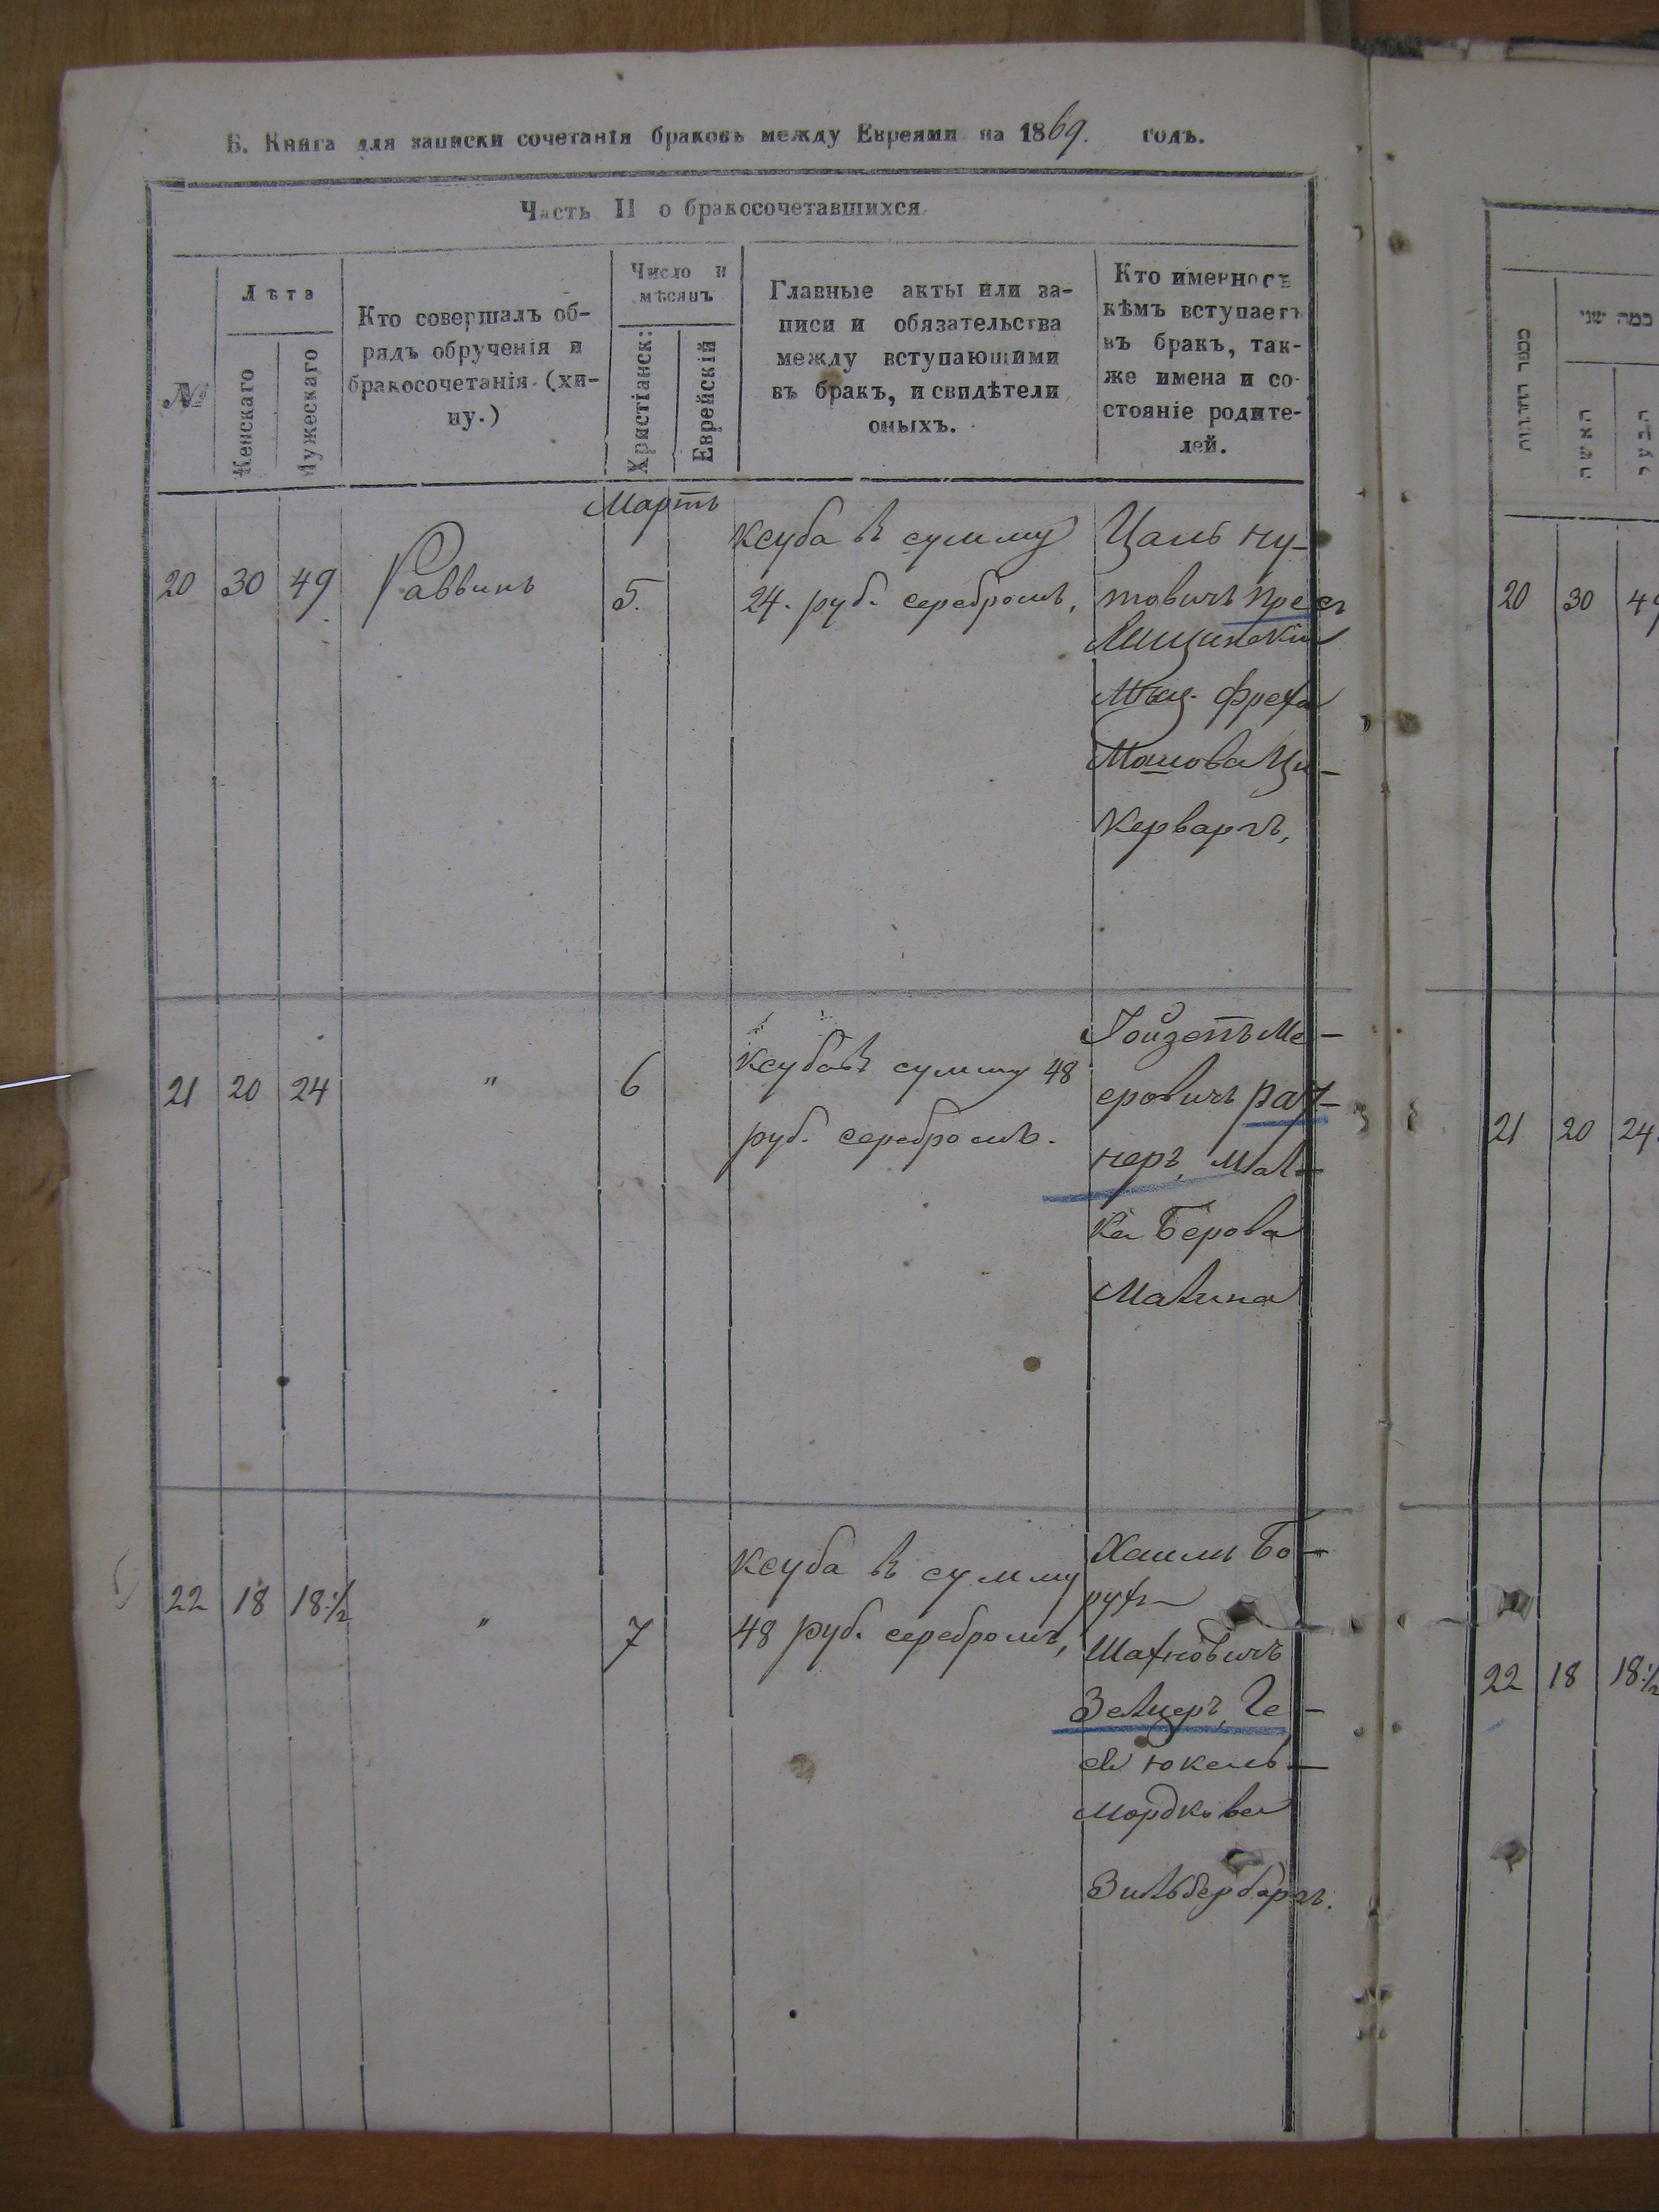 Б. Книга для записки сочетанія браковъ между Евреями на 1869. годъ.
Часть II о бракосочетавшихся.
№
Лѣта
Женскаго
Мужескаго
Кто совершалъ об-
рядъ обрученія и
бракосочетанія (хи-
пу.)
Число и
мѣсяцъ
Христіанск:
Еврейскій
Главные акты или за-
писи и обязательства
между вступающими
въ бракъ, и свидѣтели
оныхъ.
Кто именно съ
кѣмъ вступаетъ
въ бракъ, так-
же имена и со-
стояніе родите-
лей.
Мартъ
20 30 49 Раввинъ 5.
ксуба въ сумму
24. руб. серебромъ,
Цаль Ну-
товичъ Прес
Лищинскій
Мѣщ. Фрейа
Мошова Ци-
кервартъ,
21 20 24 " 6
ксуба въ сумму 48
руб. серебромъ.
Гойзетъ Ме-
еровичъ Рай-
неръ, Мал-
ка Берова
Малина
22 18 18 1/2 " 7
ксуба въ сумму
48 руб. серебромъ,
Хаимъ Бо-
рухъ
Шахновичъ
Зелцеръ, Ге-
Мордкова
Зильбербаргъ.
כמה שני
האשה
20 30 49
21 20 24.
22 18 18 1/2